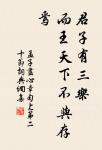 君子有三樂
而王天下不與存
焉
孟子盡心章句上第二
十節詞典網集